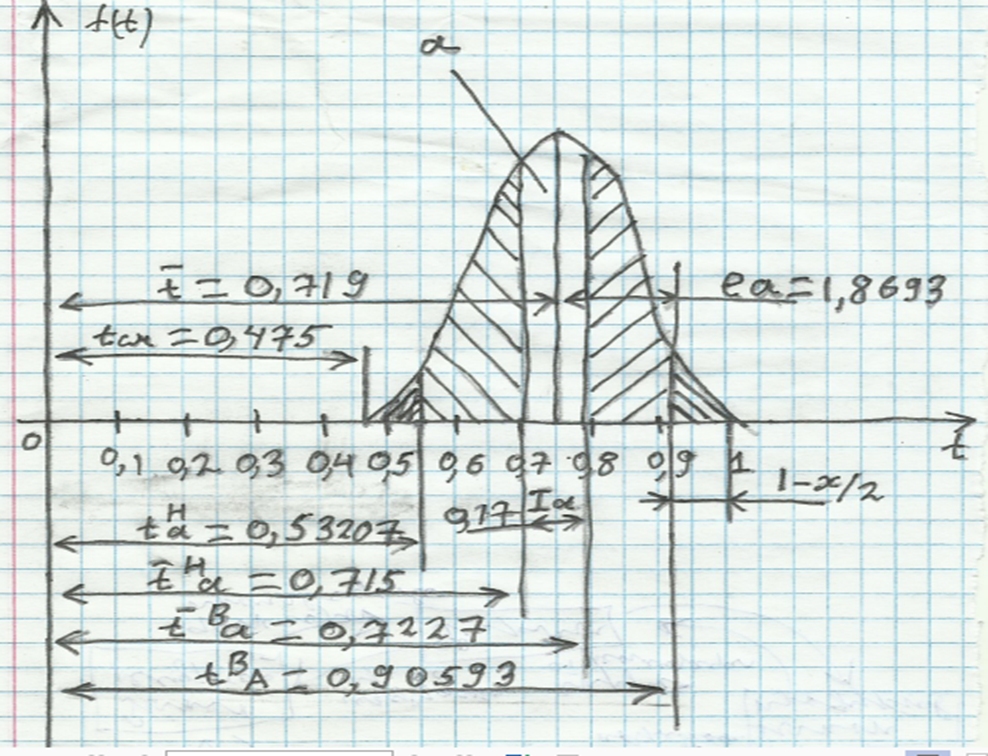 f(t)
α
t̄ = 0,719
eα = 1,8693
tсм = 0,475
0 0,1 0,2 0,3 0,4 0,5 0,6 0,7 0,8 0,9 1 t
1-x/2
0,17 Iα
tᴴα = 0,53207
t̄ᴴα = 0,715
t̄ᴮα = 0,7227
tᴮA = 0,90593